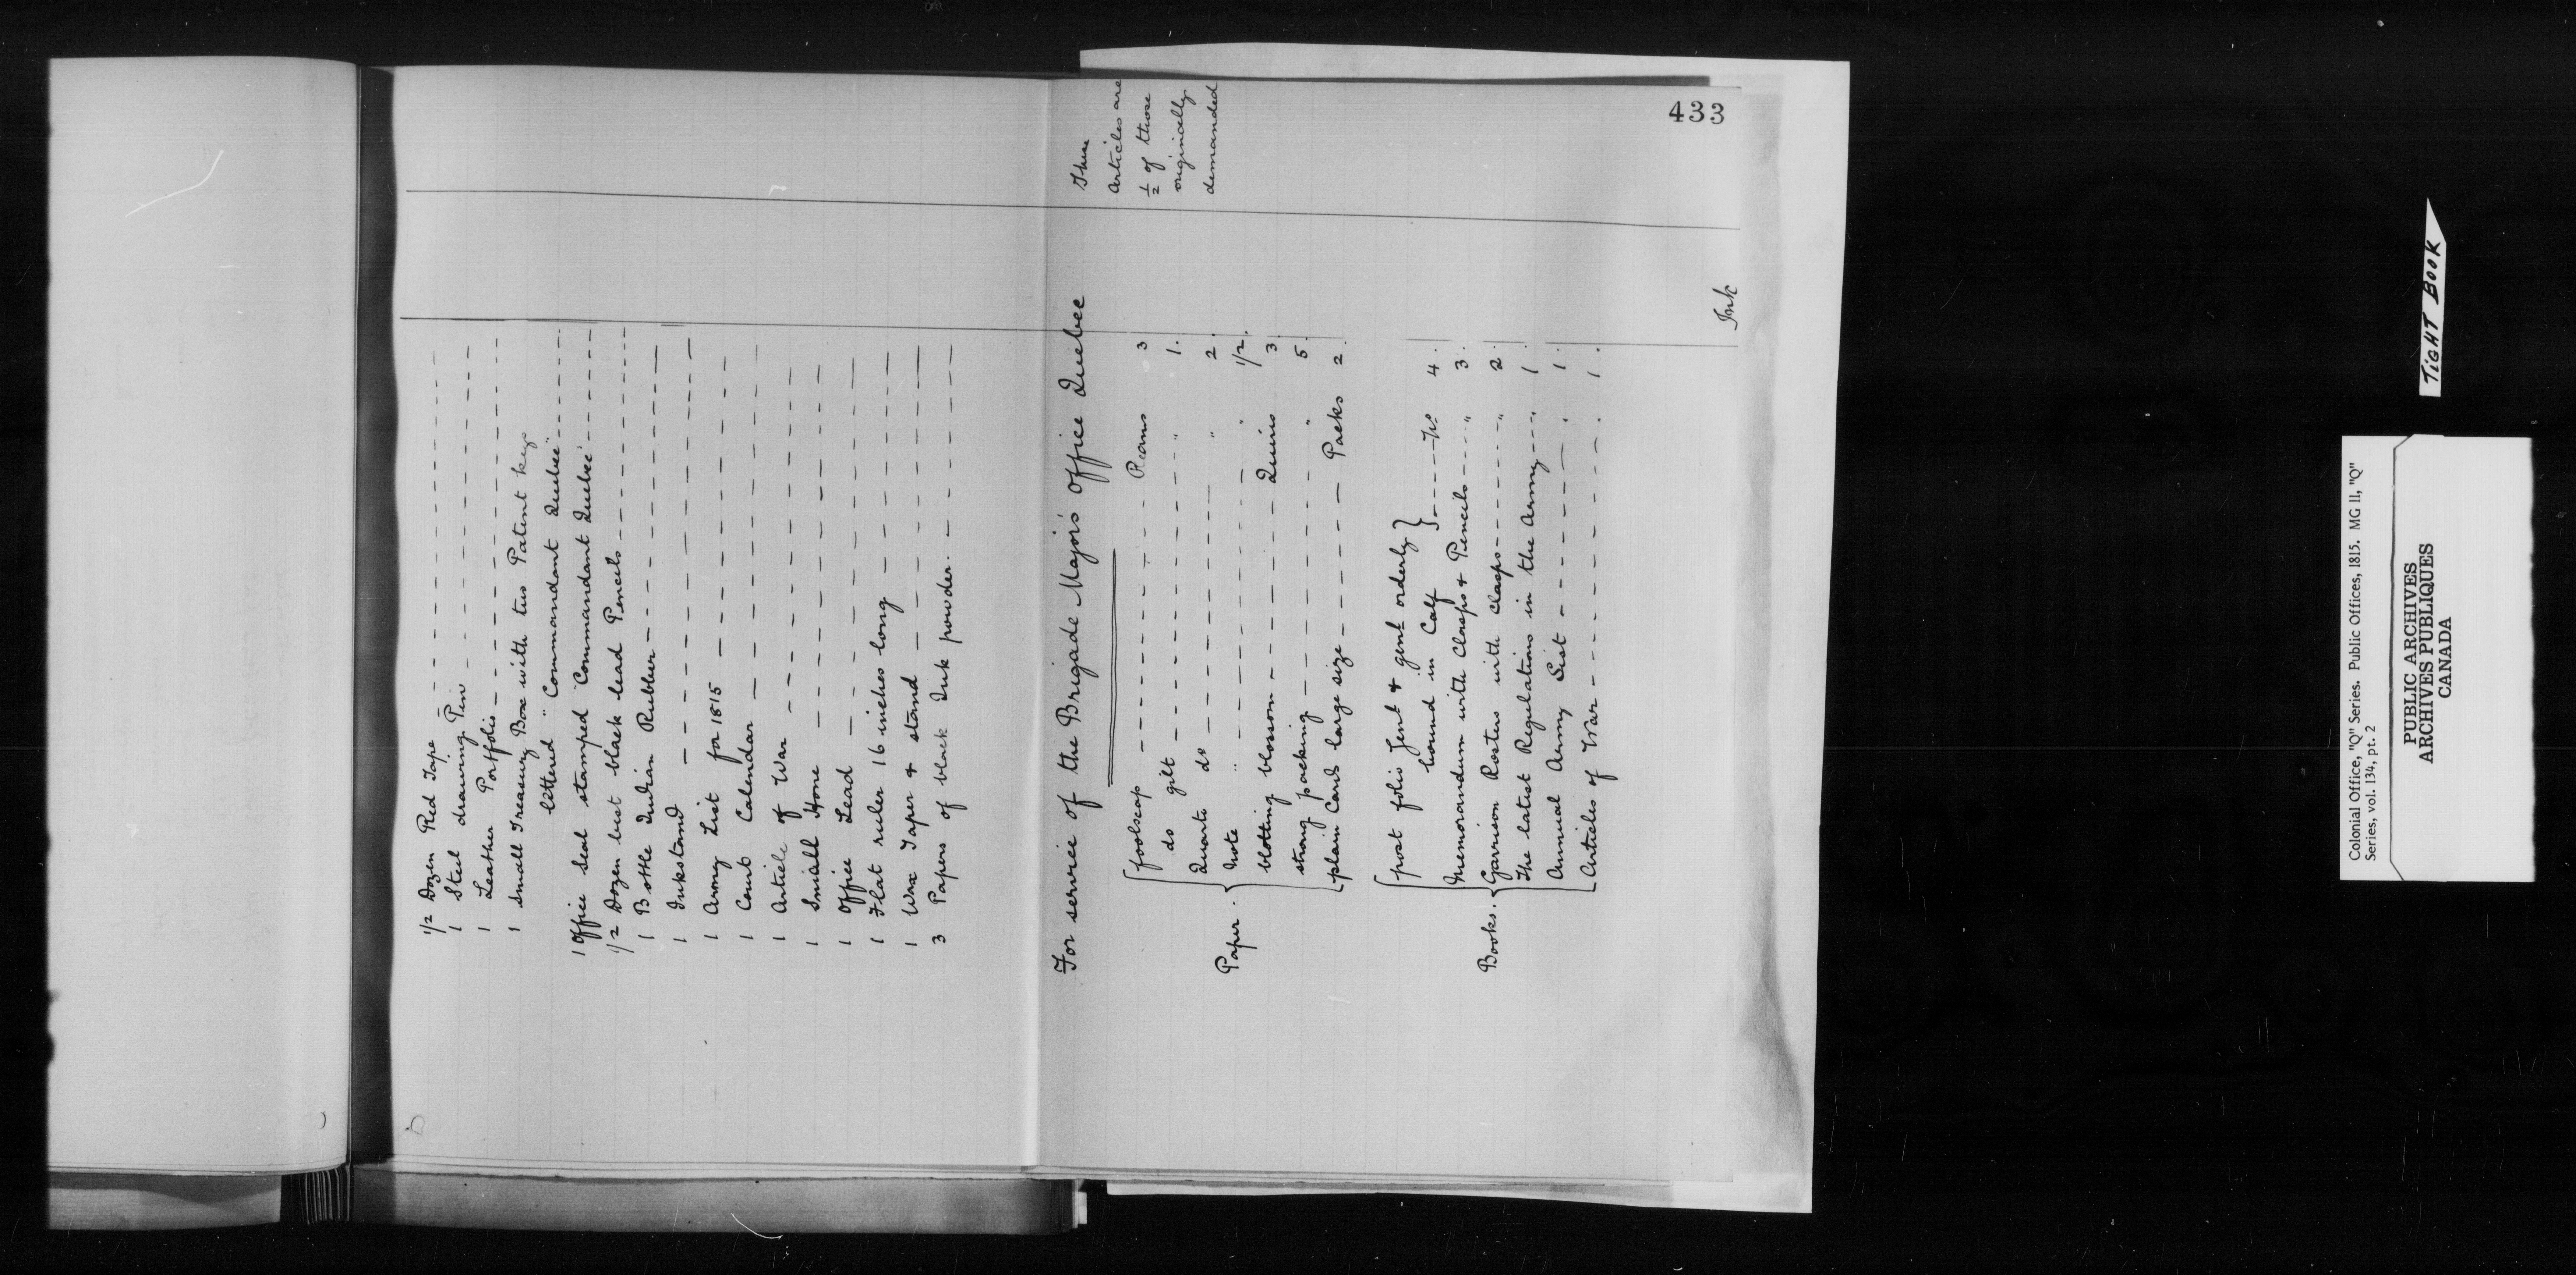 433
1/2 Dozen Red Tape
1 Steel drawing Pen
1 Leather Portfolio
1 Small Treasury Box with two Patent keys
lettered "Commandant Quebec"
1 Office Seal stamped "Commandant Quebec"
1/2 Dozen best black lead Pencils
1 Bottle Indian Rubber
1 Inkstand
1 Army List for 1815
1 Court Calendar
1 Article of War
1 Small Hone
1 Office Lead
1 Flat ruler 16 inches long
1 Wax Taper & stand
3 Papers of black Ink powder.
For service of the Brigade Major's Office Quebec
These
Articles are
1/2 of those
originically
demanded
Paper.
foolscap Reams 3
do gilt " 1.
Quarto do " 2.
Note " " 1/2.
blotting blossom Quires 3
strong packing " 5.
plain Card large size Packs 2
Books.
post folio Genl & genl orderly
bound in Calf No 4.
Memorandum with Clasps & Pencils " 3.
Garrison Rosters with clasps " 2.
The latest Regulations in the Army " 1
Annual Army List " 1.
Articles of War " 1.
Ink
TIGHT BOOK
Colonial Office, "Q" Series. Public Offices, 1815. MG 11, "Q"
Series, vol. 134, pt. 2
PUBLIC ARCHIVES
ARCHIVES PUBLIQUES
CANADA